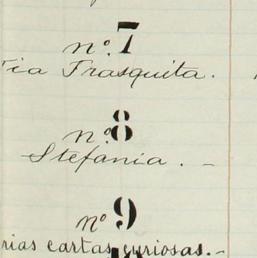 nº. 7
Tia Frasquita.
nº. 8
Stefania. -
nº 9
rias cartas curiosas.-